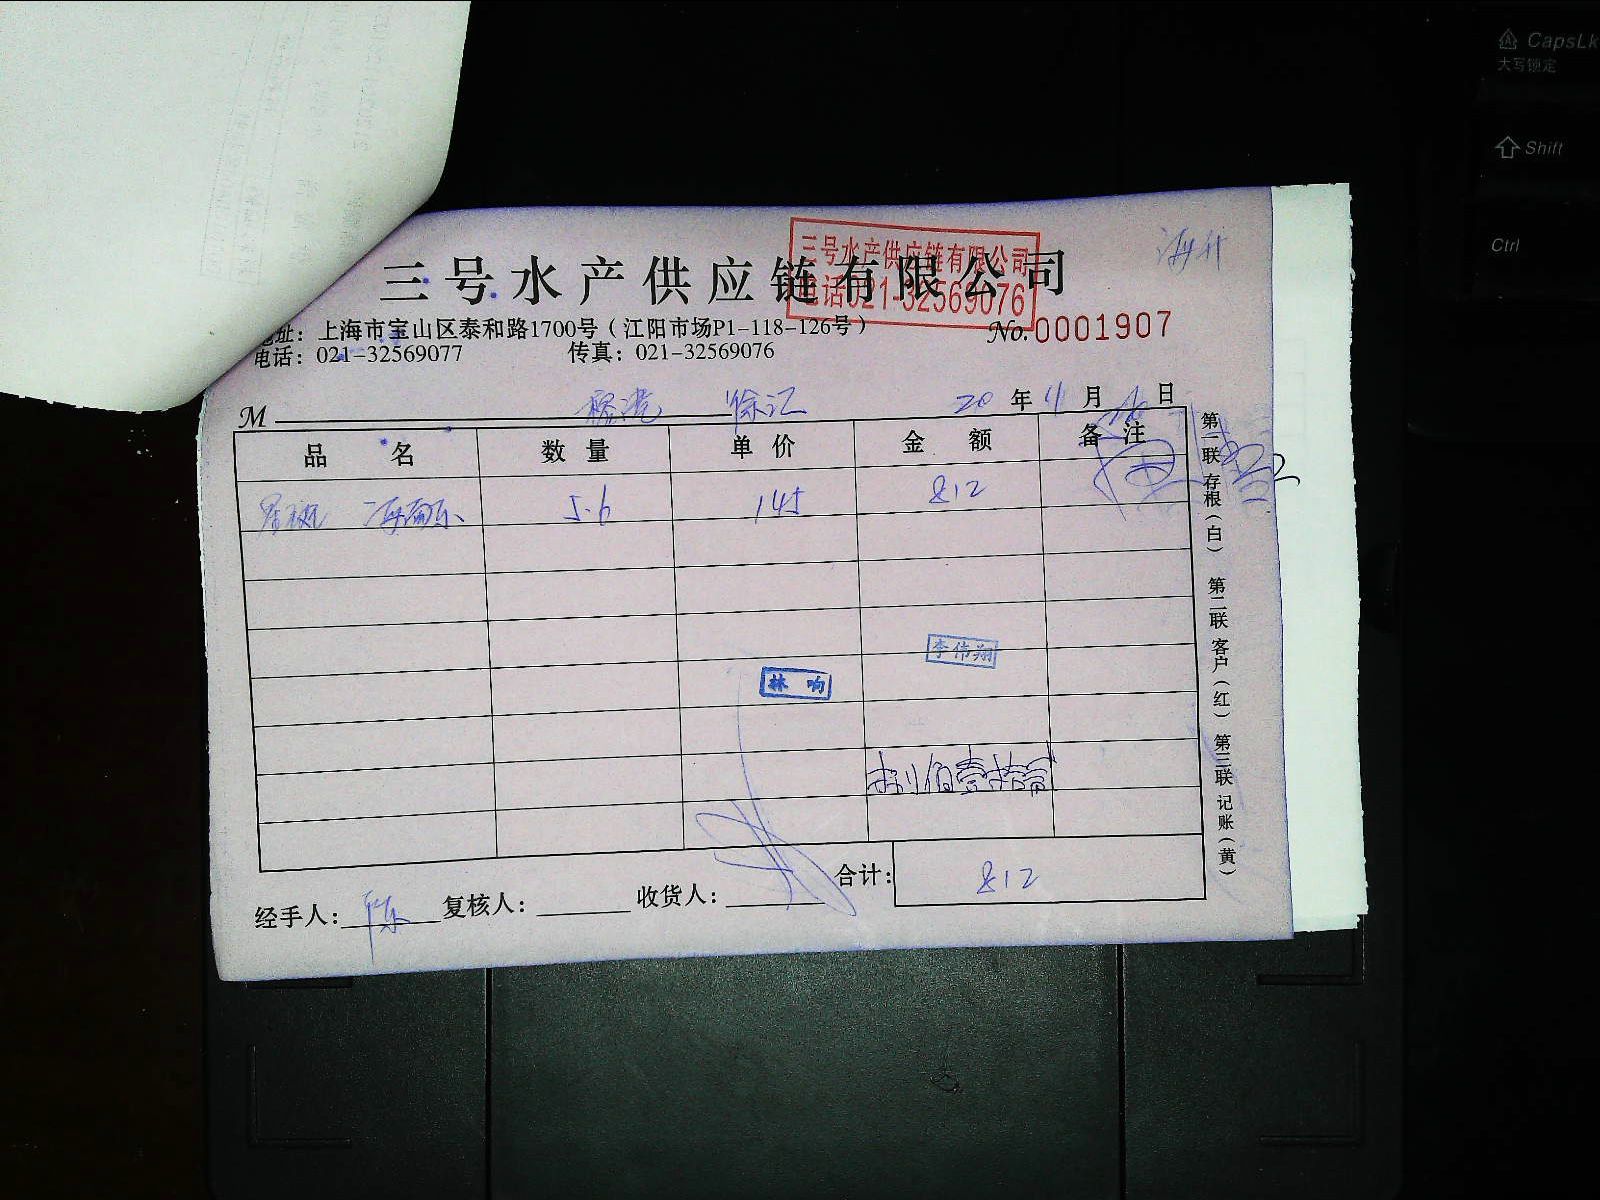 CapsLk
大写锁定
Shift
Ctrl
三号水产供应链有限公司
三号水产供应链有限公司
电话021-32569076
地址：上海市宝山区泰和路1700号（江阳市场P1-118-126号）
No.0001907
电话：021-32569077 传真：021-32569076
M 徐汇 20 年 11 月 日
品 名 数 量 单 价 金 额 备 注
5.6 145 812
李伟翔
林 响
捌佰壹拾贰
合计： 812
经手人：陈 复核人： 收货人：
第一联 存根（白） 第二联 客户（红） 第三联 记账（黄）